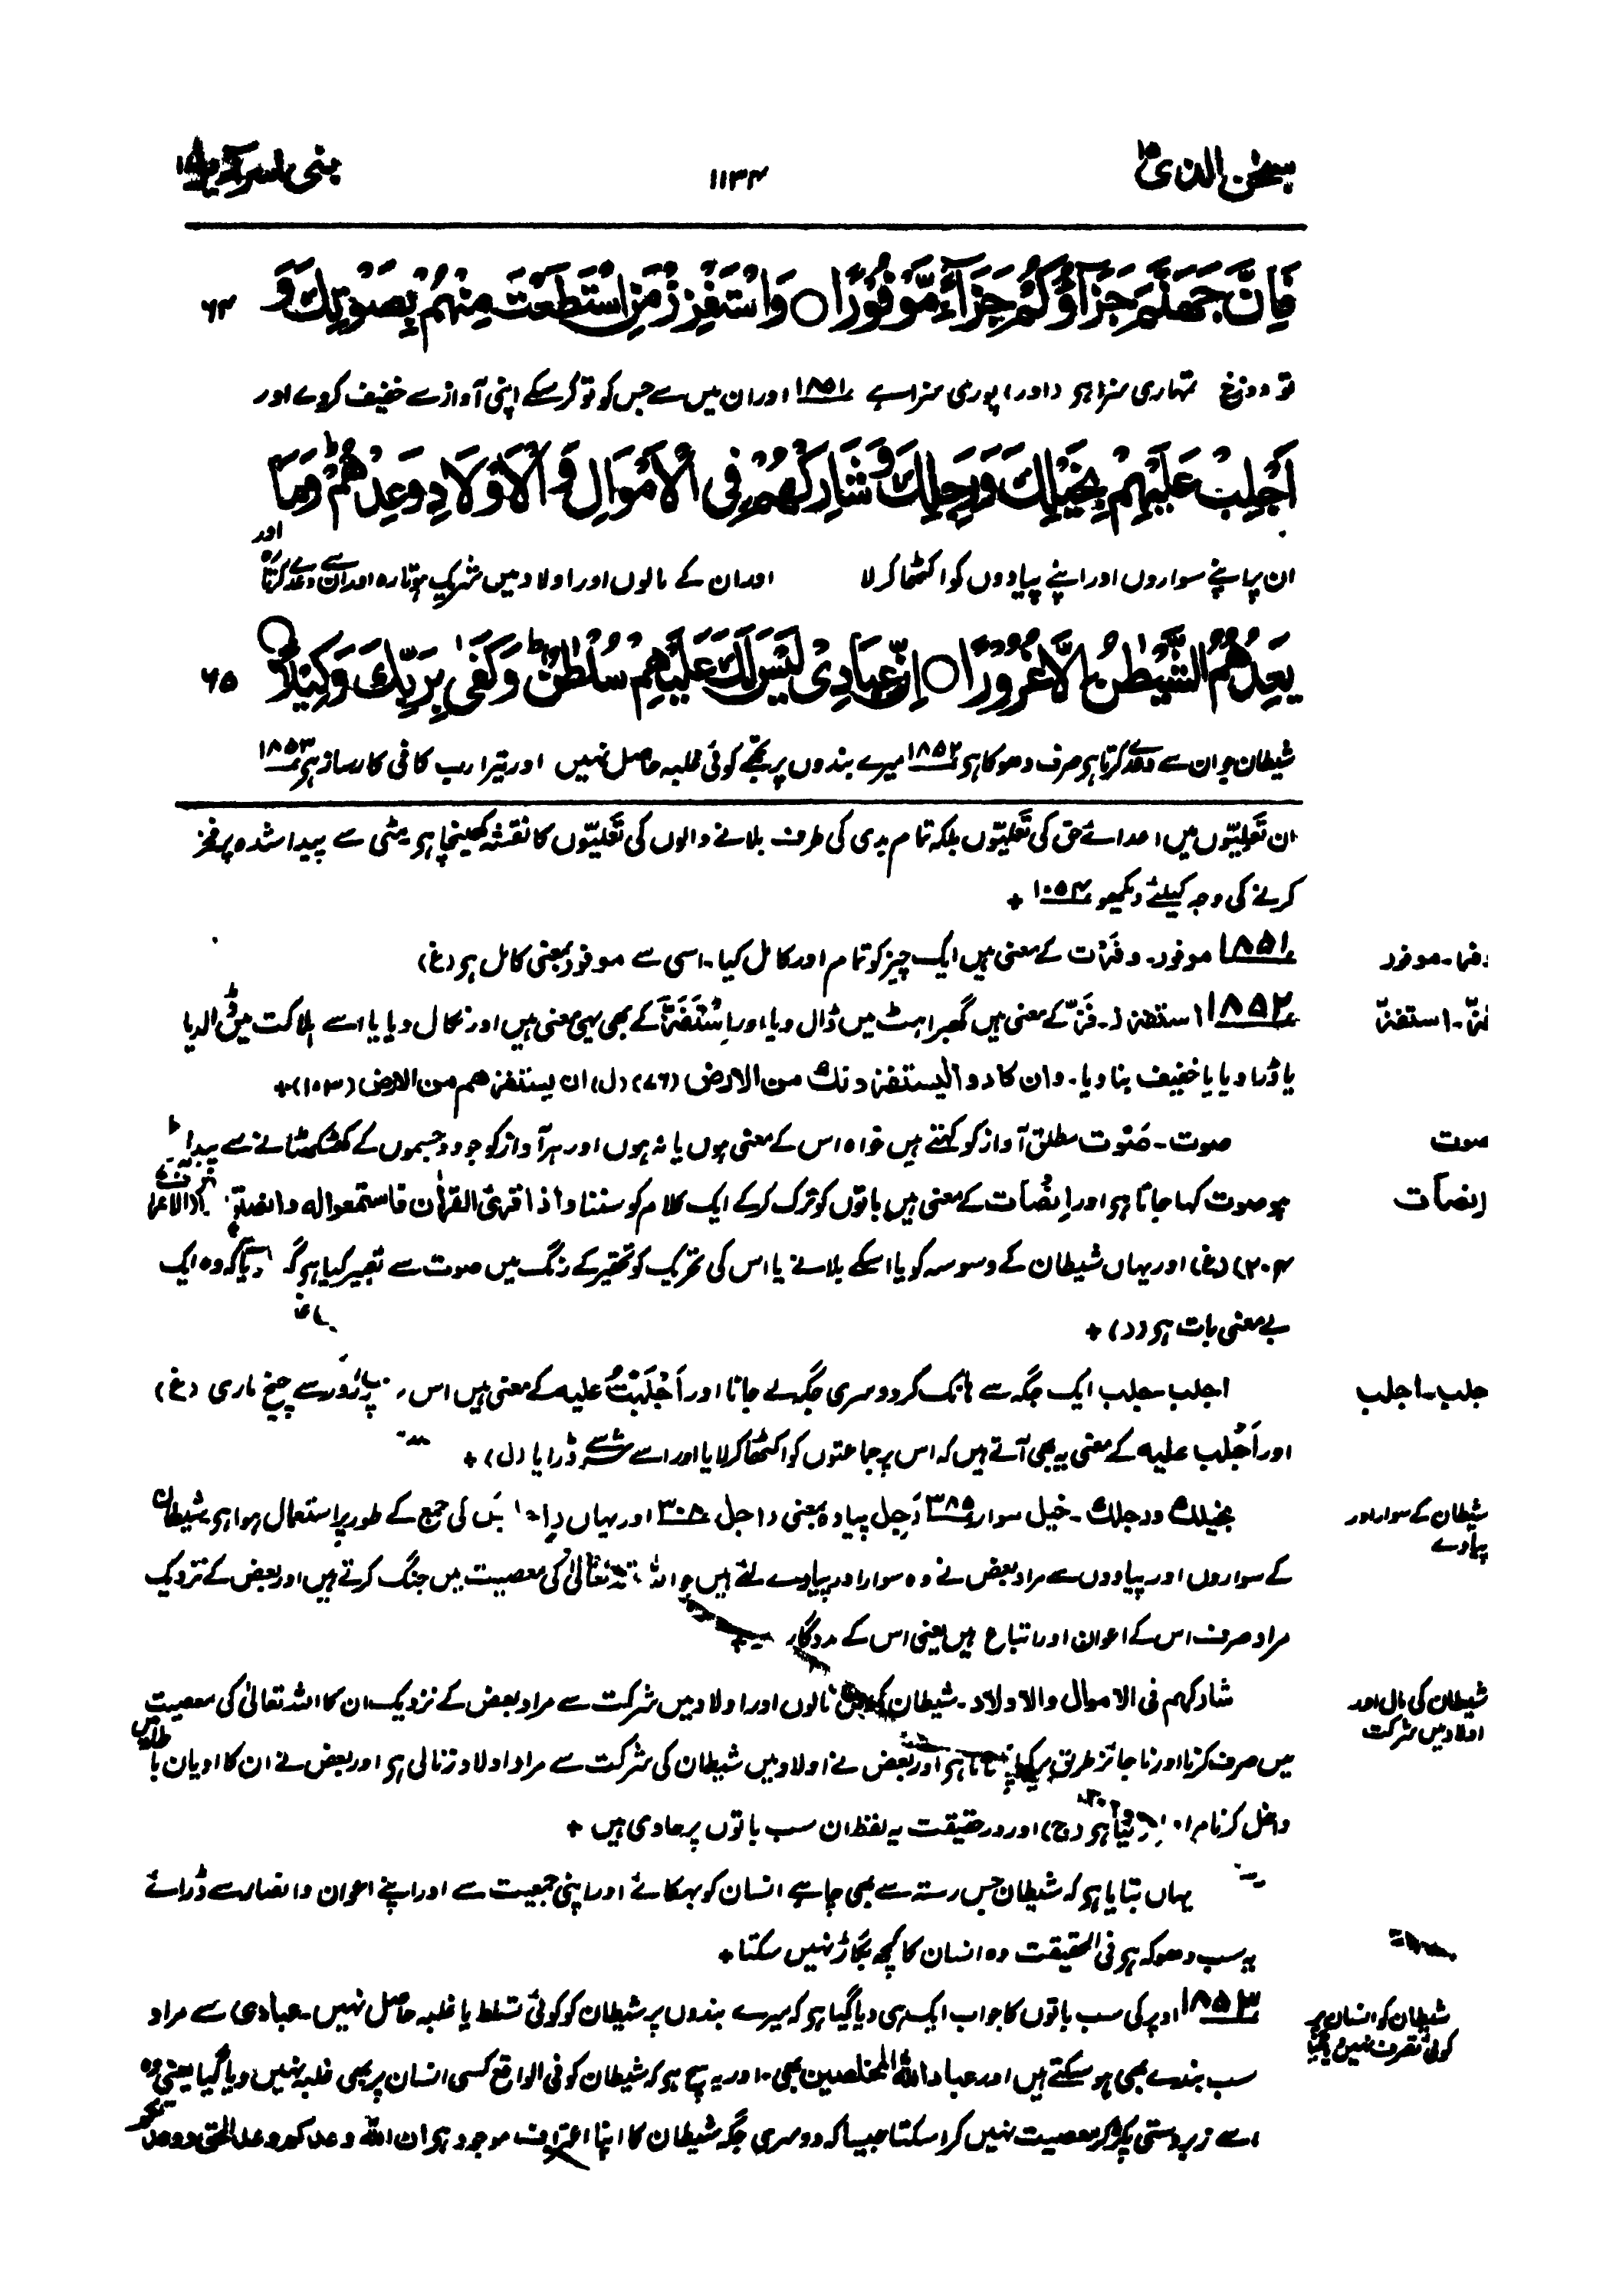 سبحٰن الذی ۱۵
۱۱۳۴
بنی اسرآءیل ۱۷
فَاِنَّ جَهَنَّمَ جَزَآؤُكُمْ جَزَآءً مَّوْفُوْرًا ○ وَاسْتَفْزِزْ مَنِ اسْتَطَعْتَ مِنْهُمْ بِصَوْتِكَ وَ
۶۴
تو دوزخ تمہاری سزا ہو (اور) پوری سزا ہے ۱۸۵۱ اور ان میں سے جس کو تو کر سکے اپنی آواز سے خفیف کردے اور
اَجْلِبْ عَلَيْهِمْ بِخَيْلِكَ وَرَجِلِكَ وَشَارِكْهُمْ فِى الْاَمْوَالِ وَالْاَوْلَادِ وَعِدْهُمْ ؕ وَمَا
ان پر اپنے سواروں اور اپنے پیادوں کو اکٹھا کر لا اور ان کے مالوں اور اولاد میں شریک ہوتا رہ اور ان سے وعدے کرتا رہ اور
يَعِدُهُمُ الشَّيْطٰنُ اِلَّا غُرُوْرًا ○ اِنَّ عِبَادِىْ لَيْسَ لَكَ عَلَيْهِمْ سُلْطٰنٌ ؕ وَكَفٰى بِرَبِّكَ وَكِيْلًا ○
۶۵
شیطان جو ان سے وعدے کرتا ہو صرف دھوکا ہو ۱۸۵۲ میرے بندوں پر تجھے کوئی غلبہ حاصل نہیں اور تیرا رب کافی کارساز ہو ۱۸۵۳
ان تَعلیّوں میں اعدائے حق کی تَعلیّوں بلکہ تمام بدی کی طرف بلانے والوں کی تَعلیّوں کا نقشہ کھینچا ہو مٹی سے پیدا شدہ پر فخر
کرنے کی وجہ کیلئے دیکھو ۱۰۵۴ +
وفر۔ موفور
۱۸۵۱ موفور۔ وفَرْت کے معنی ہیں ایک چیز کو تمام اور کامل کیا۔ اسی سے موفور بمعنی کامل ہو (غ)
فزّ۔ استفزّ
۱۸۵۲ استفزز۔ فَزّ کے معنی ہیں گھبراہٹ میں ڈال دیا، اور اِسْتَفَزَّ کے بھی یہی معنی ہیں اور نکال دیا یا اسے ہلاکت میں ڈالدیا
یا ڈرا دیا یا خفیف بنا دیا۔ وان كادوا ليستفزونك من الارض (۷۶) (ل) ان يستفزهم من الارض (۱۰۳) +
صوت
صوت۔ صَوْت مطلق آواز کو کہتے ہیں خواہ اس کے معنی ہوں یا نہ ہوں اور ہر آواز کو جو دو جسموں کے کھٹکھٹانے سے پیدا
اِنصَات
ہو صوت کہا جاتا ہو اور اِنْصَات کے معنی ہیں باتوں کو ترک کرکے ایک کلام کو سننا واذا قرئ القراٰن فاستمعوا له وانصتوا
۲۰۴) (غ) اور یہاں شیطان کے وسوسہ کو یا اسکے بلانے یا اس کی تحریک کو تحقیر کے رنگ میں صوت سے تعبیر کیا ہو کہ وہ ایک
بے معنی بات ہو (ر) +
جلب۔ اجلب
اجلب۔ جلب ایک جگہ سے ہانک کر دوسری جگہ لے جانا اور اَجْلَبْتُ علیہ کے معنی ہیں اس پر زور سے چیخ ماری (غ)
اور اَجْلب علیہ کے معنی یہ بھی آتے ہیں کہ اس پر جماعتوں کو اکٹھا کر لایا اور اسے شر سے ڈرایا (ل) +
شیطان کے سوار اور
پیادے
بخيلك ورجلك۔ خیل سوار ۳۸۵ رَجِل پیادہ بمعنی راجل ۳۰۸ اور یہاں کی جمع کے طور پر استعمال ہوا ہو شیطان
کے سواروں اور پیادوں سے مراد بعض نے وہ سوار اور پیادے لئے ہیں جو اللہ تعالیٰ کی معصیت میں جنگ کرتے ہیں اور بعض کے نزدیک
مراد صرف اس کے اعوان اور اتباع ہیں یعنی اس کے مددگار +
شیطان کی مال اور
اولاد میں شرکت
شارکهم فی الاموال والاولاد۔ شیطان کی مالوں اور اولاد میں شرکت سے مراد بعض کے نزدیک ان کا اللہ تعالیٰ کی معصیت
میں صرف کرنا اور ناجائز طریق پر جاتا ہو اور بعض نے اولاد میں شیطان کی شرکت سے مراد اولاد زنا لی ہو اور بعض نے ان کا ادیان باطلہ میں
داخل کرنا مراد لیا ہو (ج) اور در حقیقت یہ لفظ ان سب باتوں پر حاوی ہیں +
یہاں بتایا ہو کہ شیطان جس رستہ سے بھی چاہے انسان کو بہکائے اور اپنی جمعیت سے اور اپنے اعوان و انصار سے ڈرائے
یہ سب دھوکہ ہو فی الحقیقت وہ انسان کا کچھ بگاڑ نہیں سکتا +
شیطان کو انسان پر
کوئی تصرف نہیں دیا گیا
۱۸۵۳ اوپر کی سب باتوں کا جواب ایک ہی دیا گیا ہو کہ میرے بندوں پر شیطان کو کوئی تسلط یا غلبہ حاصل نہیں۔ عبادی سے مراد
سب بندے بھی ہو سکتے ہیں اور عباد اللہ المخلصین بھی۔ اور یہ سچ ہو کہ شیطان کو فی الواقع کسی انسان پر بھی غلبہ نہیں دیا گیا یعنی وہ
اسے زبردستی پکڑ کر معصیت نہیں کرا سکتا جیسا کہ دوسری جگہ شیطان کا اپنا اعتراف موجود ہو ان الله وعدكم وعد الحق ووعدتكم